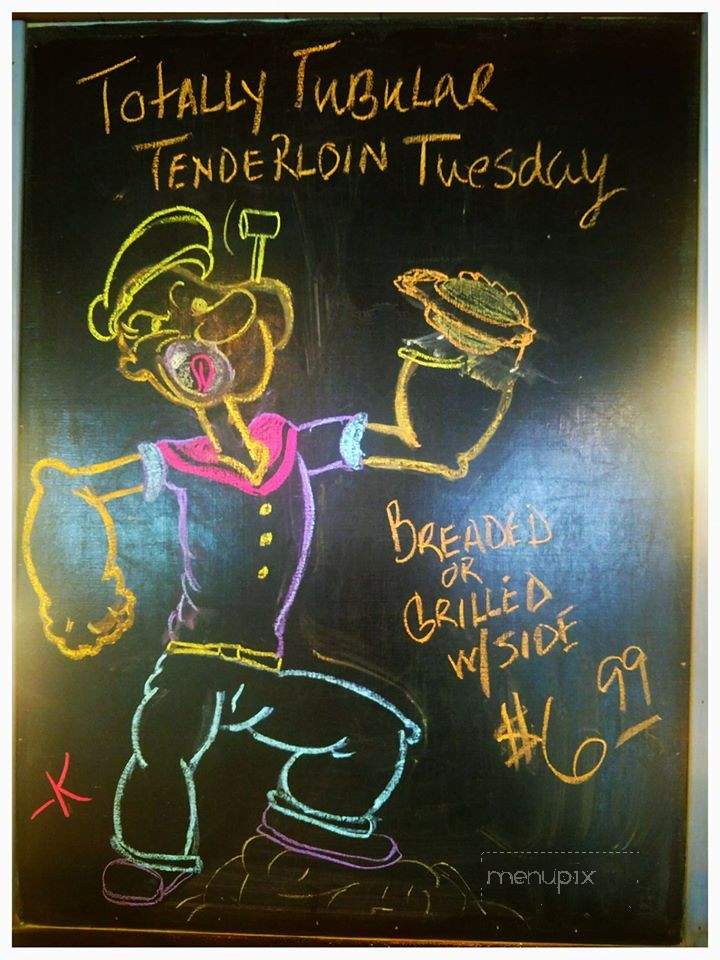 Totally Tubular
Tenderloin Tuesday
Breaded
or
Grilled
w/side
$6.99
-K
menupix